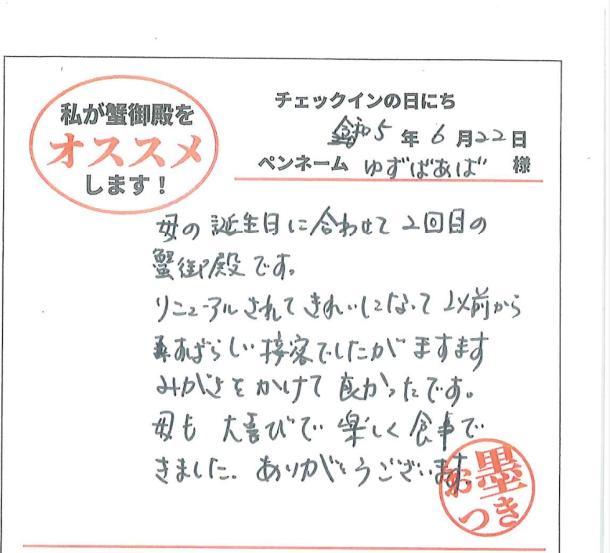 私が蟹御殿を
オススメ
します！
チェックインの日にち
令和5年6月22日
ペンネーム ゆずばあば 様
母の誕生日に合わせて2回目の
蟹御殿です。
リニューアルされてきれいになって以前から
すばらしい接客でしたがますます
みがきをかけて良かったです。
母も大喜びで楽しく食事で
きました。ありがとうございます。
お墨
つき